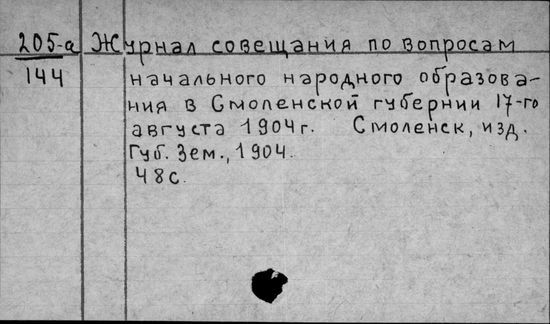 205-а Журнал совещания по вопросам
144 начального народного образова-
ния в Смоленской губернии 17-го
августа 1904г. Смоленск, изд.
Губ. Зем., 1904.
48с.